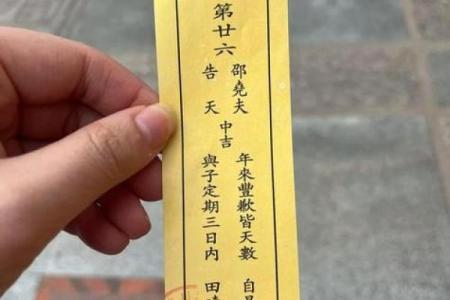 第廿六
邵堯夫
告天
中吉
年來豐歉皆天數 自
與子定期三日內 田